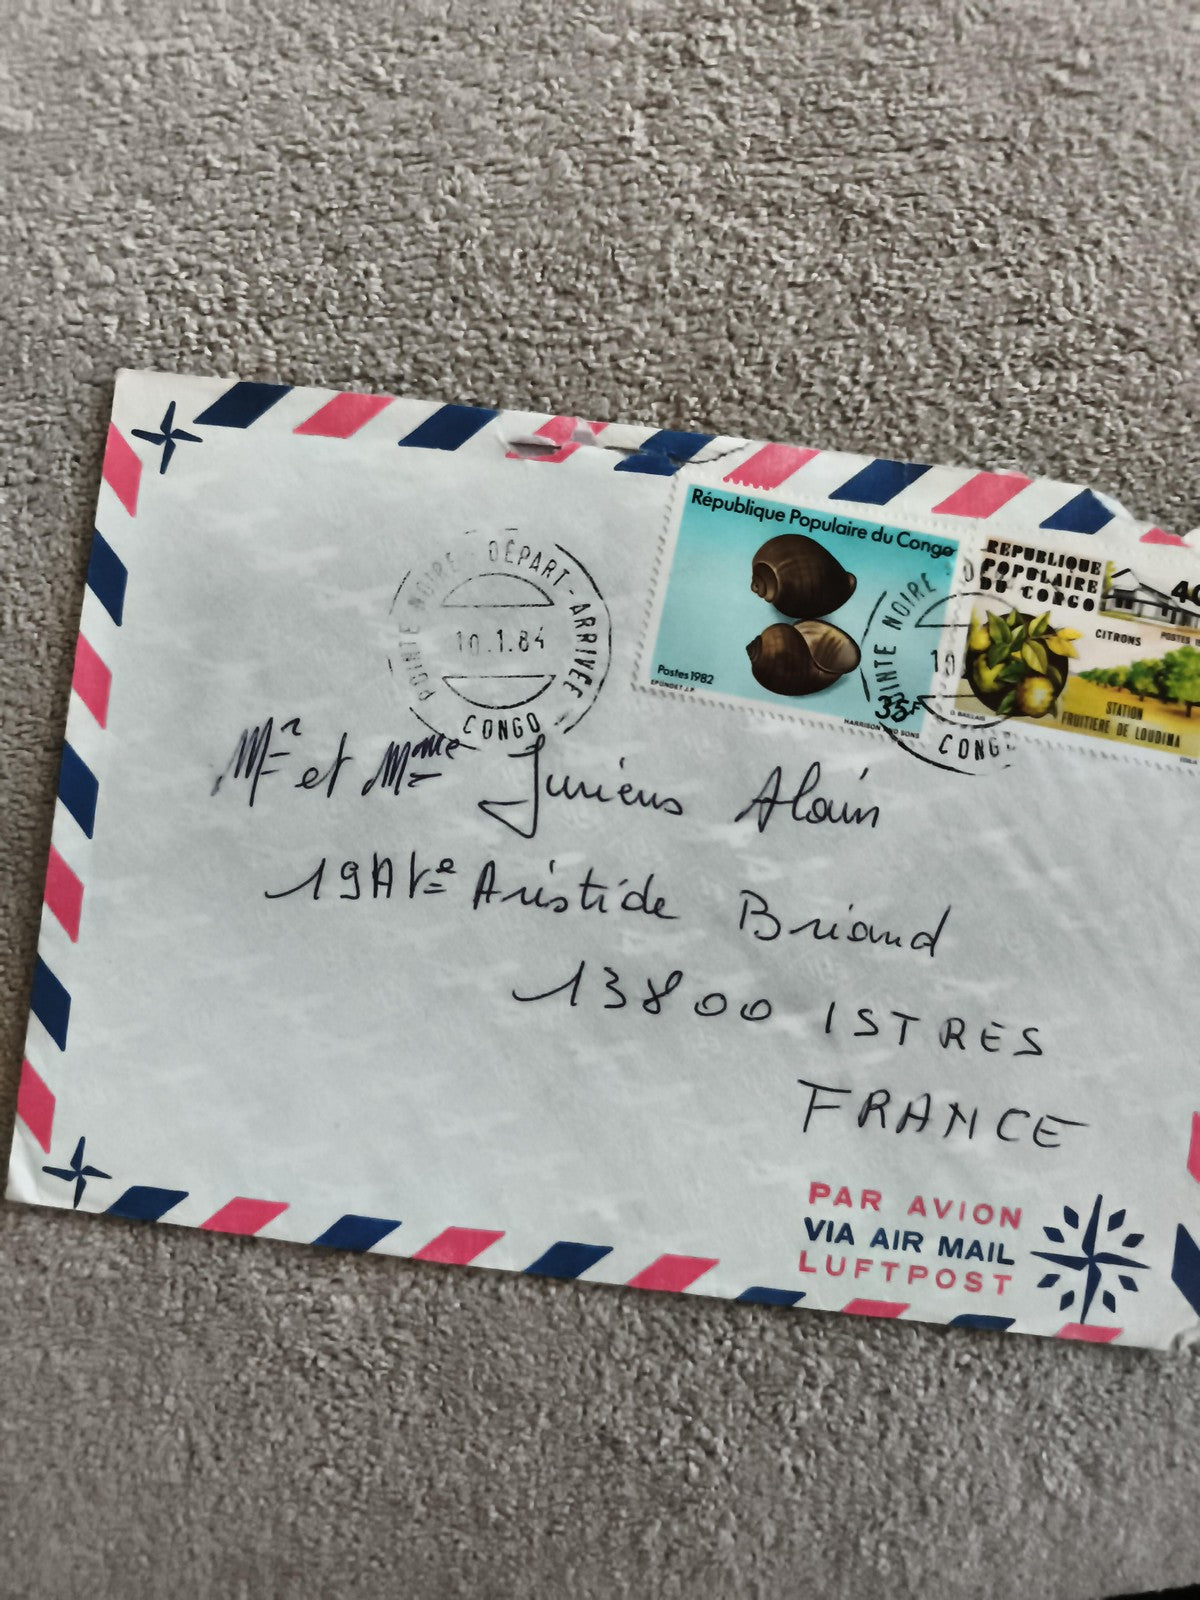 République Populaire du Congo
Postes 1982
HARRISON AND SONS
35F
REPUBLIQUE
POPULAIRE
DU CONGO
40
CITRONS
POSTES
STATION
FRUITIERE DE LOUDIMA
POINTE NOIRE DÉPART-ARRIVÉE
10.1.84
CONGO
POINTE NOIRE
10
CONGO
Mr et Mme Juriens Alain
19 AVe Aristide Briand
13800 ISTRES
FRANCE
PAR AVION
VIA AIR MAIL
LUFTPOST